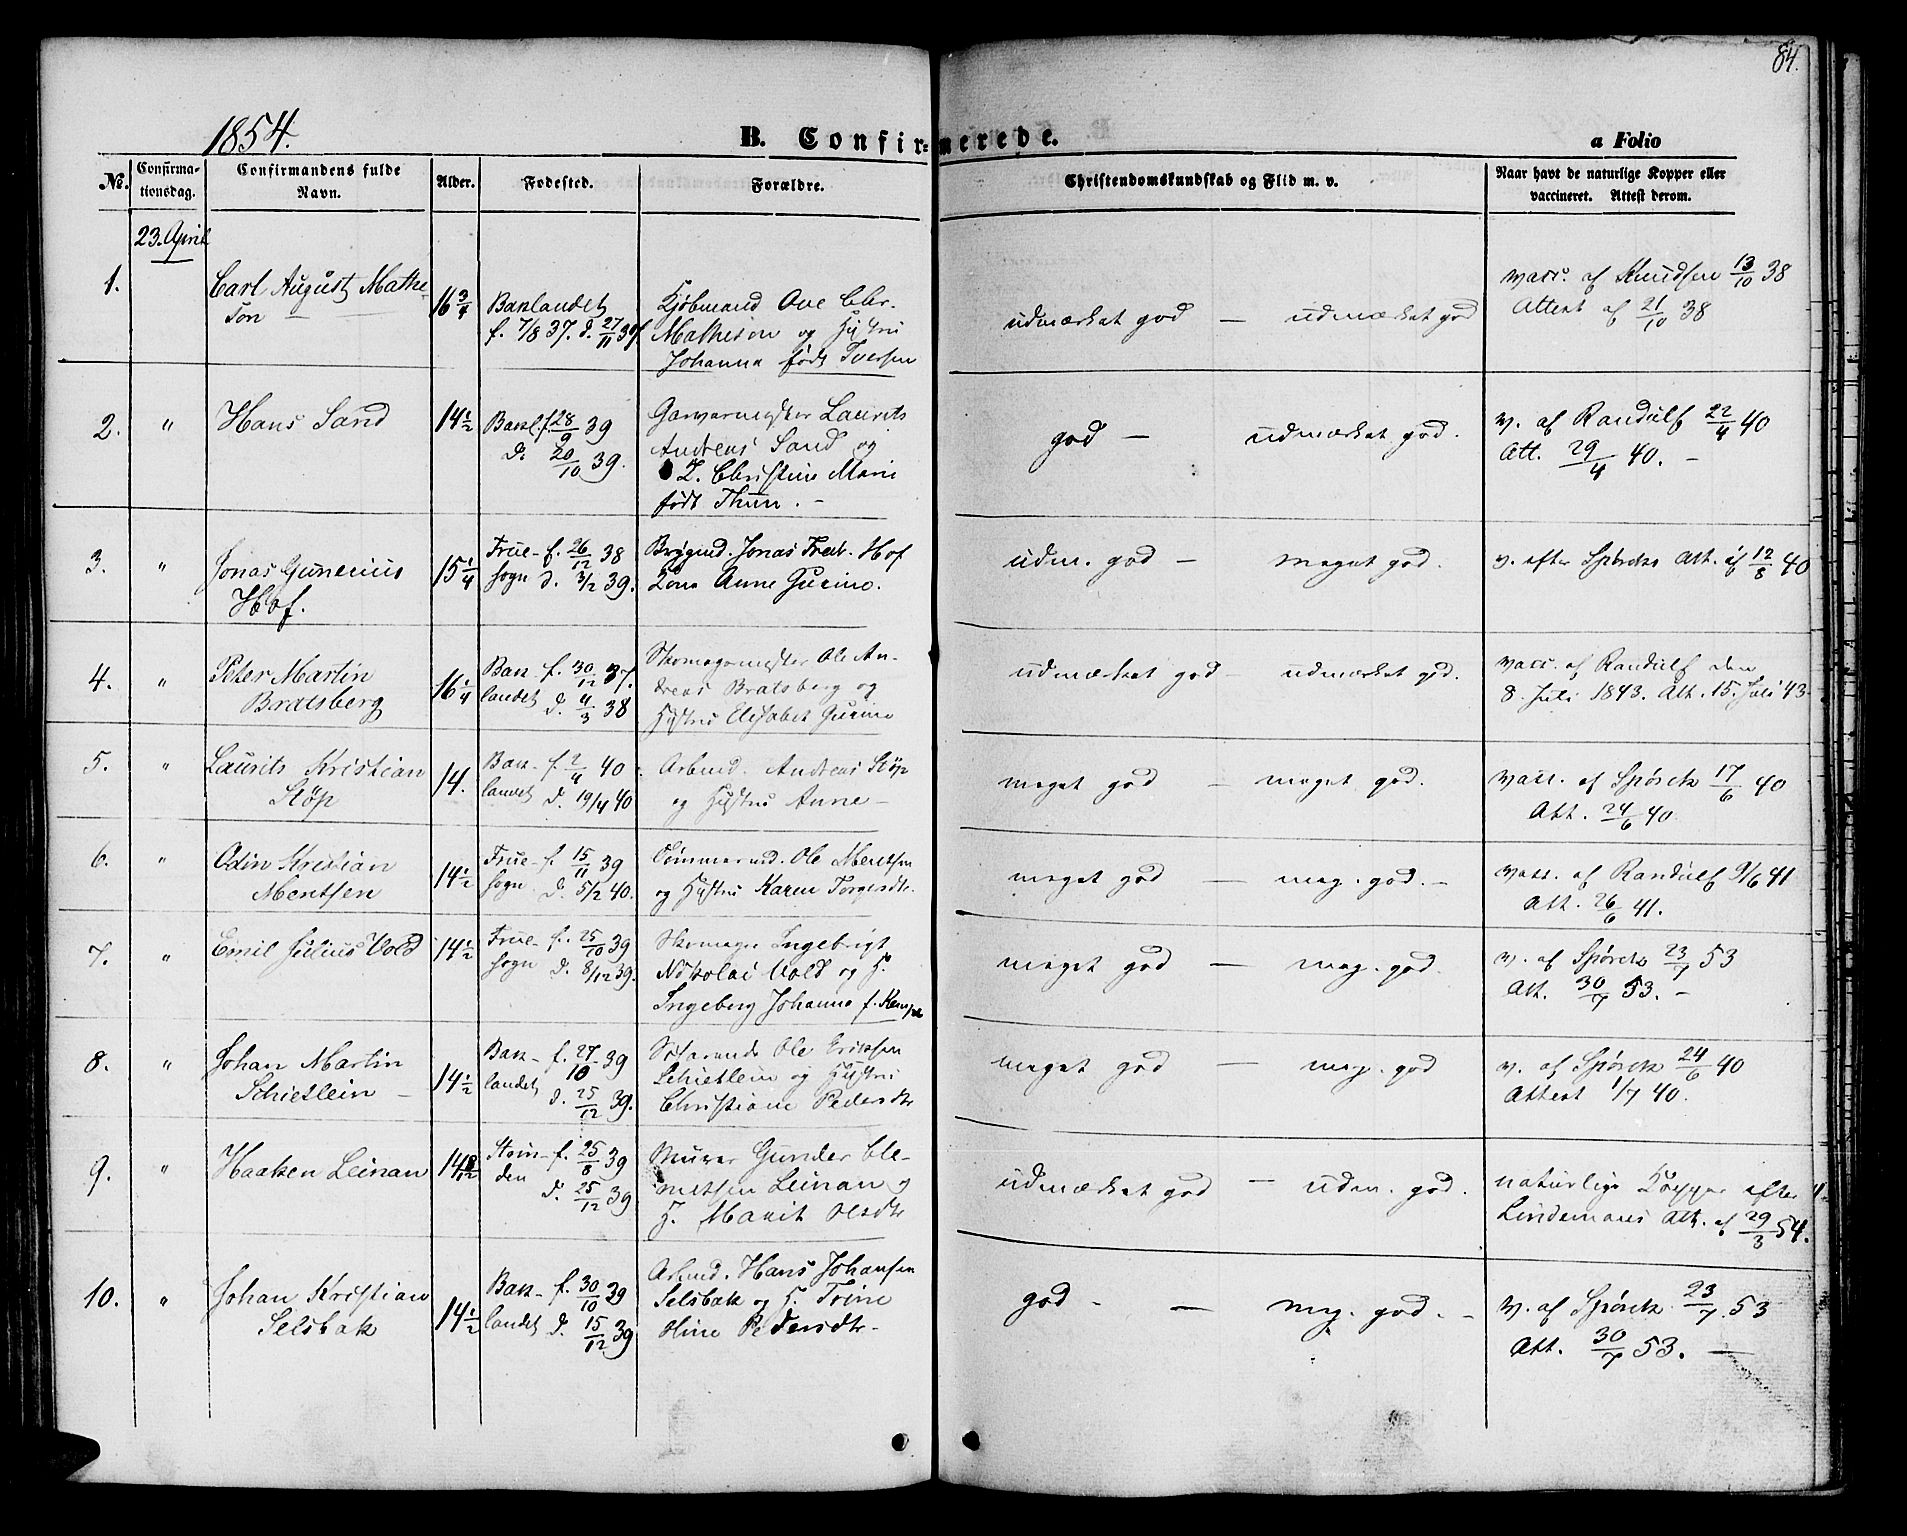 84.
1854.
B. Confirmerede.
a Folio
No.
Confirma-
tionsdag.
Confirmandens fulde
Navn.
Alder.
Fødested.
Forældre.
Christendomskundskab og Flid m. v.
Naar havt de naturlige Kopper eller
vaccineret. Attest derom.
23. April
1.
Carl August Mathe-
son
16 3/4
Baklandet
f. 7/8 37. d. 27/11 37.
Kjøbmand Ove Chr.
Matheson og Hustru
Johanna født Iversen
udmærket god — udmærket god
vacc. af Knudsen 13/10 38
Attest af 21/10 38
2. "
Hans Sand
14 1/2
Bakl. f. 28/9 39
d. 20/10 39.
Garvermester Laurits
Andreas Sand og
H. Christine Marie
født Thun. —
god — udmærket god.
v. af Randulf 22/4 40
Att. 29/4 40. —
3. "
Jonas Gunerius
Hof.
15 1/4
Frue- f. 26/12 38
sogn d. 3/2 39.
Brygmd. Jonas Fredr. Hof
Kone Anne Gurine.
udm. god — meget god.
v. efter Spørcks Att. af 12/8 40
4. "
Peter Martin
Bratsberg
16 1/4
Bak- f. 30/12 37.
landet d. 4/3 38
Skomagermester Ole An-
dreas Bratsberg og
Hustru Elisabet Gurine
udmærket god — udmærket god.
vacc. af Randulf den
8. Juli 1843. Att. 15. Juli 43
5. "
Laurits Kristian
Støp
14.
Bak- f. 2/4 40
landet d. 19/4 40
Arbmd. Andreas Støp
og Hustru Anne —
meget god — meget god.
vacc. af Spørck 17/6 40
Att. 24/6 40.
6. "
Odin Kristian
Mentsen
14 1/2
Frue- f. 15/11 39
sogn d. 5/2 40.
Tømmermd. Ole Mentsen
og Hustru Karen Torgersdtr.
meget god — meg. god. —
vacc. af Randulf 9/6 41
Att. 26/6 41.
7. "
Emil Julius Vold
14 1/2
Frue- f. 25/10 39
sogn d. 8/12 39.
Skomager Ingebrigt
Nikolai Vold og H.
Ingeberg Johanna f.
meget god — meg. god.
v. af Spørck 23/7 53
Att. 30/7 53. —
8. "
Johan Martin
Schietlein —
14 1/2
Bak- f. 27/10 39
landet d. 25/12 39.
Ole Eriksen
Schietlein og Hustru
Christiane Pedersdtr
meget god — meg. god
v. af Spørck 24/6 40
Attest 1/7 40.
9. "
Haaken Leinan
Strin- f. 25/8 39
den d. 25/12 39
Murer Gunder Cle-
metsen Leinan og
H. Marit Olsdtr
udmærket god — udm. god.
naturlige Kopper efter
Lindemans Att. af 29/3 54.
10. "
Johan Kristian
Selsbak
14 1/2
Bak- f. 30/10 39
landet d. 15/12 39
Arbmd. Hans Johansen
Selsbak og H. Trine
Oline Pedersdtr.
god — — meg. god. —
v. af Spørck 23/7 53
Att. 30/7 53. —